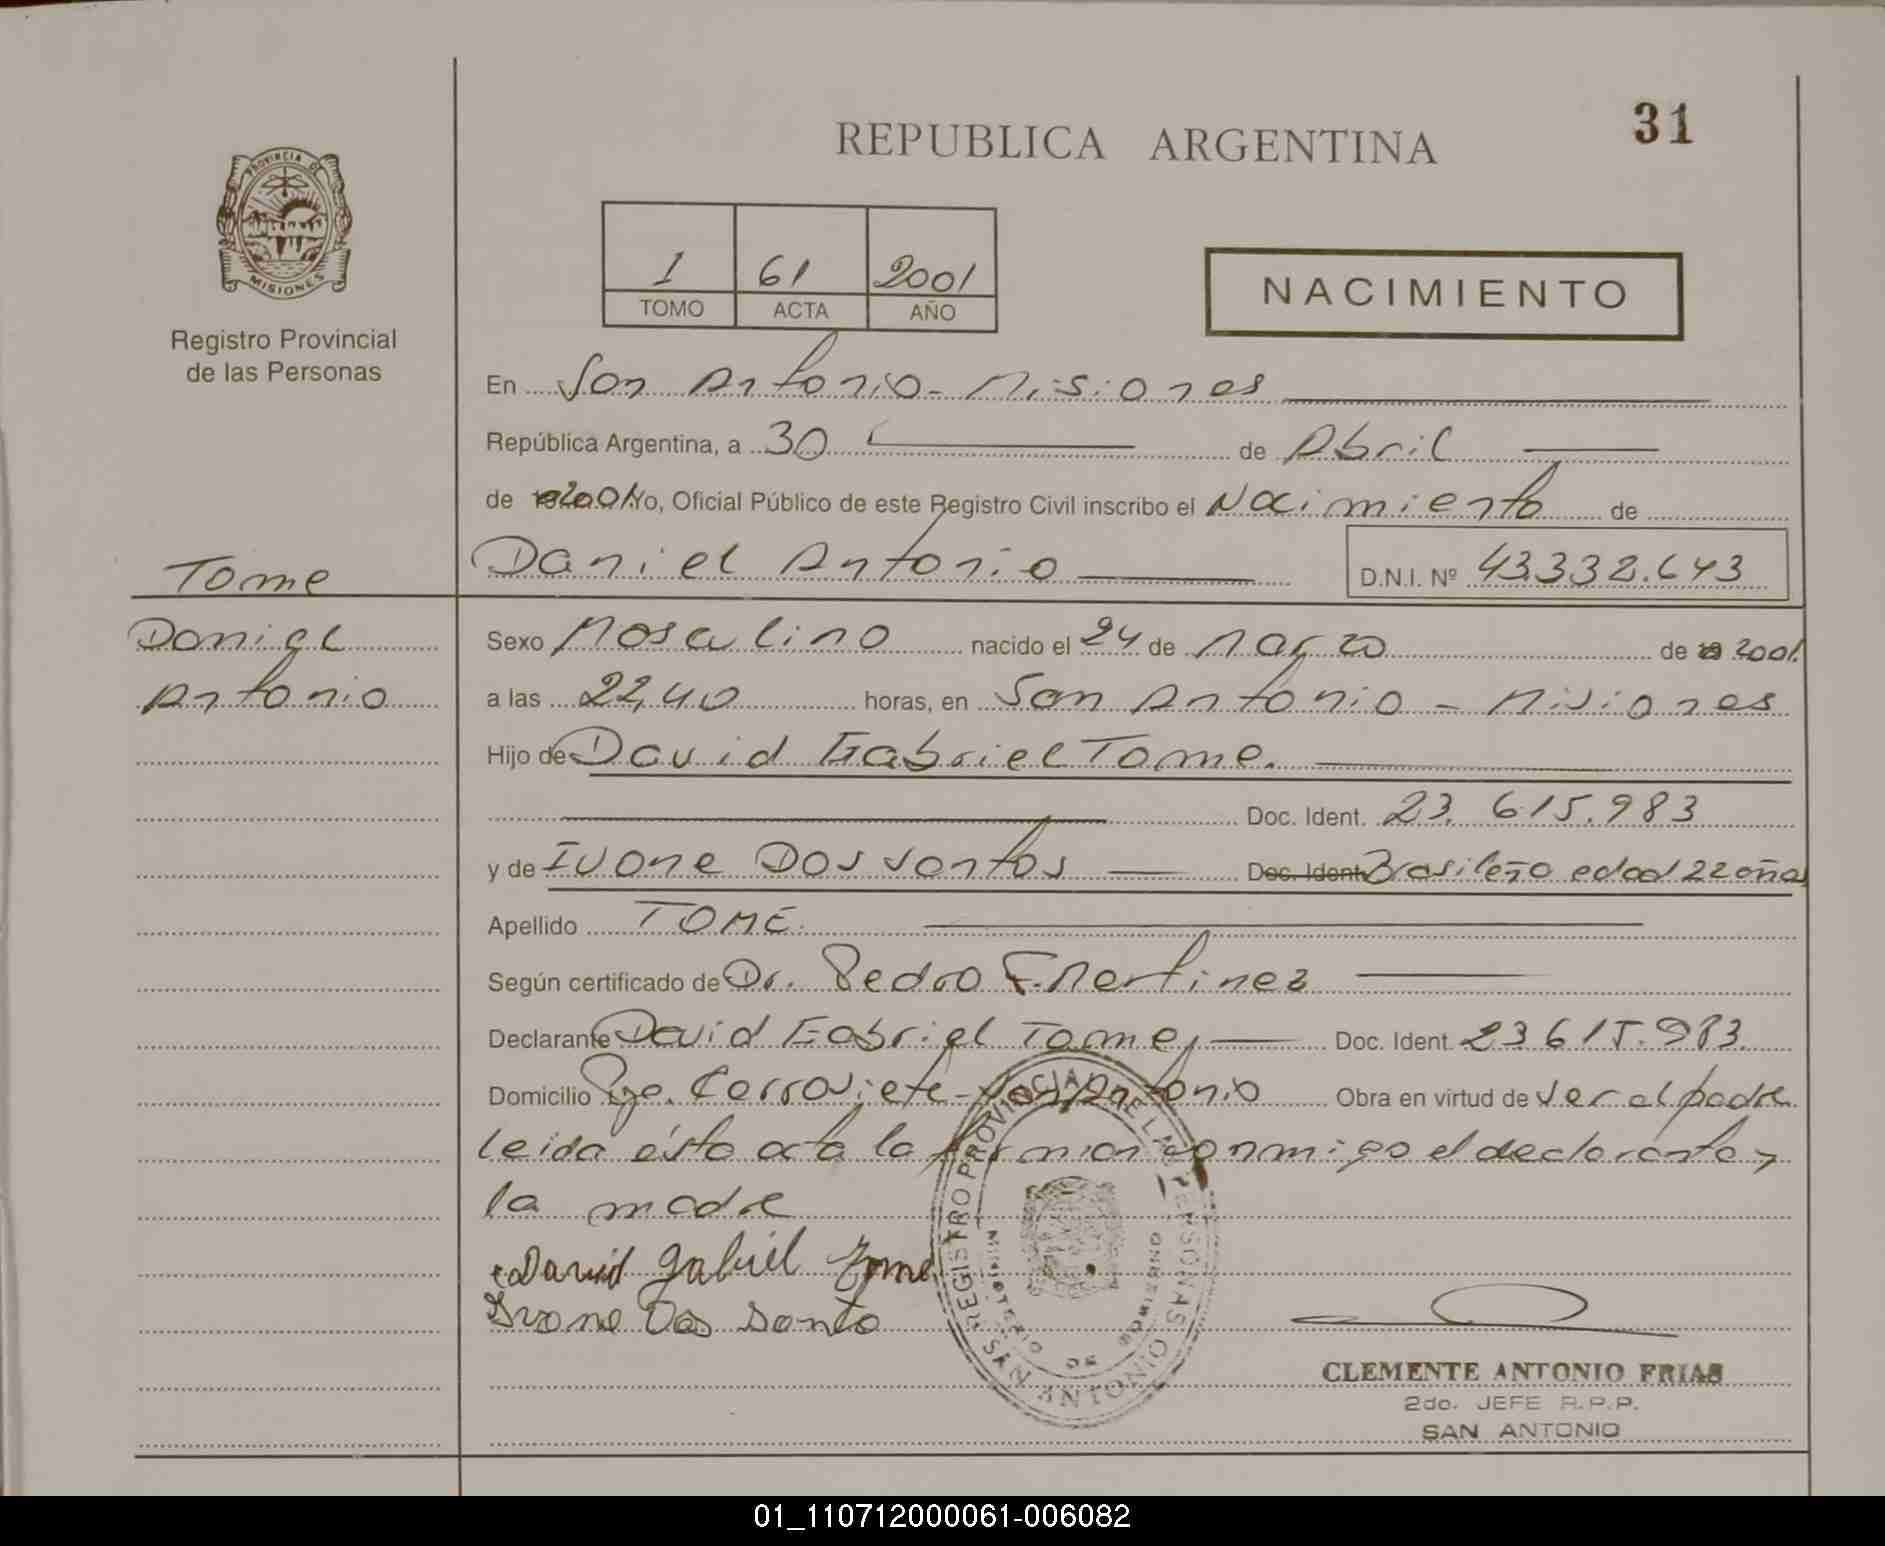 31
REPUBLICA ARGENTINA
PROVINCIA DE
MISIONES
Registro Provincial
de las Personas
1 61 2001
TOMO ACTA AÑO
NACIMIENTO
En San Antonio - Misiones
República Argentina, a 30 de Abril
de 2001 Yo, Oficial Público de este Registro Civil inscribo el Nacimiento de
Tome
Daniel Antonio D.N.I. Nº 43.332.643
Daniel
Antonio
Sexo Masculino nacido el 24 de Marzo de 2001.
a las 22,40 horas, en San Antonio - Misiones
Hijo de David Gabriel Tome.
Doc. Ident. 23.615.983
y de Ivone Dos Santos Doc. Ident. Brasileña edad 22 años
Apellido TOME.
Según certificado de Dr. Pedro F. Martinez
Declarante David Gabriel Tome, Doc. Ident. 23615.983.
Domicilio Pje. Corroviete - San Antonio Obra en virtud de ser el padre
leida ésta acta la firman conmigo el declarante y
la madre
David Gabriel Tome
Ivone Dos Santo
REGISTRO PROVINCIAL DE LAS PERSONAS
MINISTERIO DE GOBIERNO
SAN ANTONIO
CLEMENTE ANTONIO FRIAS
2do. JEFE R.P.P.
SAN ANTONIO
01_110712000061-006082